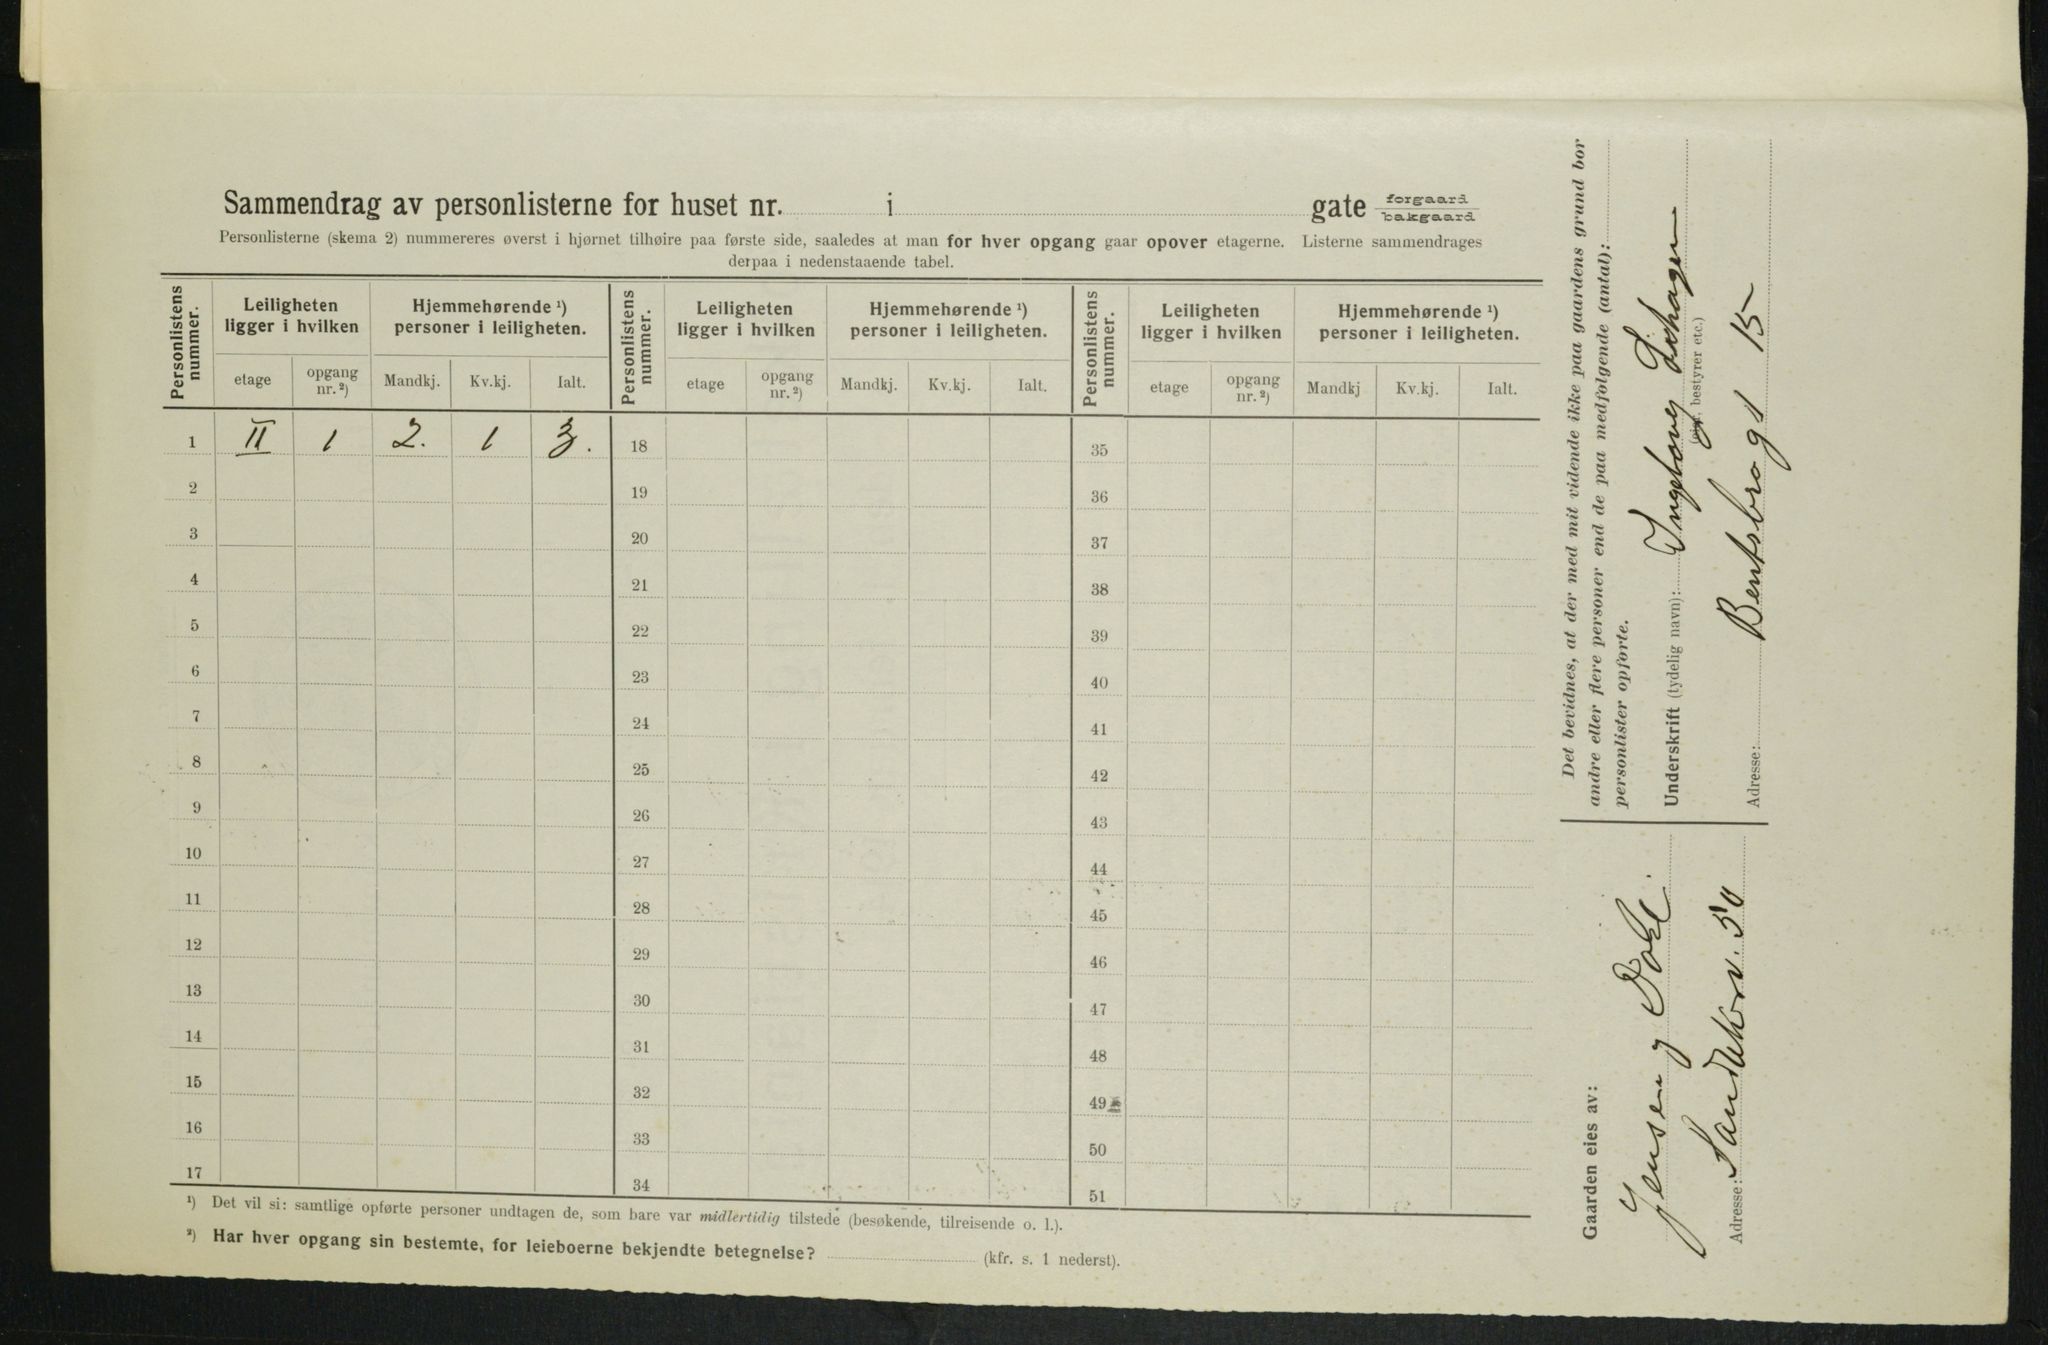 Sammendrag av personlisterne for huset nr. i gate forgaard bakgaard
Personlisterne (skema 2) nummereres øverst i hjørnet tilhøire paa første side, saaledes at man for hver opgang gaar opover etagerne. Listerne sammendrages
derpaa i nedenstaaende tabel.
Personlistens nummer. Leiligheten ligger i hvilken Hjemmehørende ¹) personer i leiligheten. Personlistens nummer. Leiligheten ligger i hvilken Hjemmehørende ¹) personer i leiligheten. Personlistens nummer. Leiligheten ligger i hvilken Hjemmehørende ¹) personer i leiligheten.
etage opgang nr. ²) Mandkj. Kv.kj. Ialt. etage opgang nr. ²) Mandkj. Kv.kj. Ialt. etage opgang nr. ²) Mandkj Kv.kj. Ialt.
1 II 1 2. 1 3. 18 35
2 19 36
3 20 37
4 21 38
5 22 39
6 23 40
7 24 41
8 25 42
9 26 43
10 27 44
11 28 45
12 29 46
13 30 47
14 31 48
15 32 49
16 33 50
17 34 51
¹) Det vil si: samtlige opførte personer undtagen de, som bare var midlertidig tilstede (besøkende, tilreisende o. l.).
²) Har hver opgang sin bestemte, for leieboerne bekjendte betegnelse? (kfr. s. 1 nederst).
Det bevidnes, at der med mit vidende ikke paa gaardens grund bor
andre eller flere personer end de paa medfølgende (antal):
personlister opførte.
Underskrift (tydelig navn): Ingeborg
(eier, bestyrer etc.)
Adresse: Bentsbrogt 15
Gaarden eies av:
Jensen &
Adresse: Sandakerv. 50